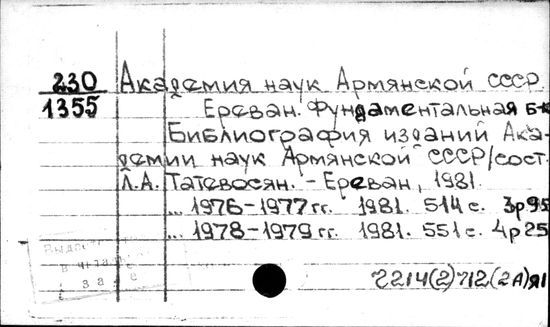 230 Академия наук Армянской ССР.
1355 Ереван. Фундаментальная б-к
Библиография изданий Ака-
демии наук Армянской ССР/сост.
Л.А. Татевосян. - Ереван, 1981.
... 1976-1977 гг. 1981. 514 с. 3р95
... 1978-1979 гг. 1981. 551 с. 4р25
Выдает
в читаль
зале
Ч214(2)712(2А)я1